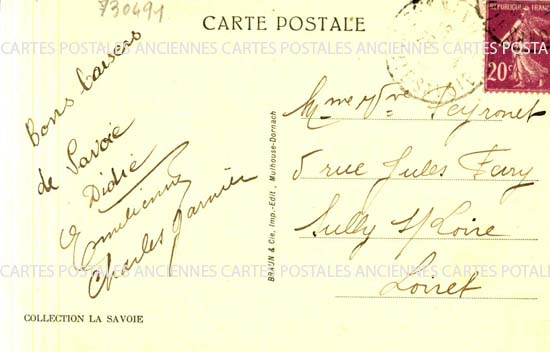 730491
CARTE POSTALE
REPUBLIQUE FRANCAISE
20c
CARTES POSTALES ANCIENNES CARTES POSTALES ANCIENNES CARTES POSTALES
Bons baisers
de Savoie
Didie
Emilienne
Charles Garnier
BRAUN & Cie, Imp.-Edit., Mulhouse-Dornach
Mme Vve Peyronet
5 rue Jules Ferry
Sully s/Loire
Loiret
CARTES POSTALES ANCIENNES CARTES POSTALES ANCIENNES CARTES POTALES
COLLECTION LA SAVOIE